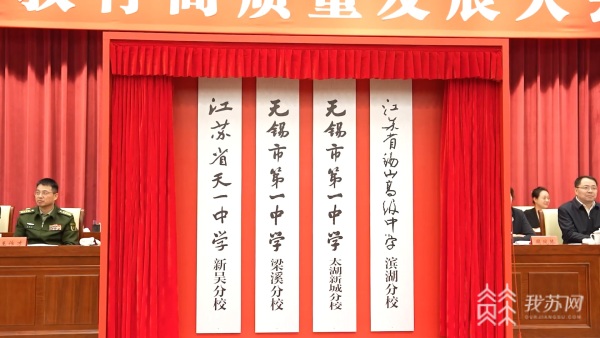 教育高质量发展大会
江苏省天一中学 新吴分校
无锡市第一中学 梁溪分校
无锡市第一中学 太湖新城分校
江苏省锡山高级中学 滨湖分校
我苏网
OURJIANGSU.COM